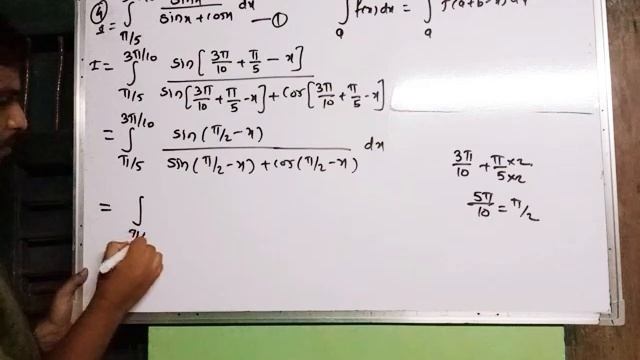 ④ I = ∫_{π/5}^{3π/10} sinx / (sinx + cosx) dx —①
∫_a f(x) dx = ∫_a f(a+b-x) dx
I = ∫_{π/5}^{3π/10} sin[3π/10 + π/5 - x] / (sin[3π/10 + π/5 - x] + cos[3π/10 + π/5 - x])
= ∫_{π/5}^{3π/10} sin(π/2 - x) / (sin(π/2 - x) + cos(π/2 - x)) dx
3π/10 + π×2/5×2
5π/10 = π/2
= ∫